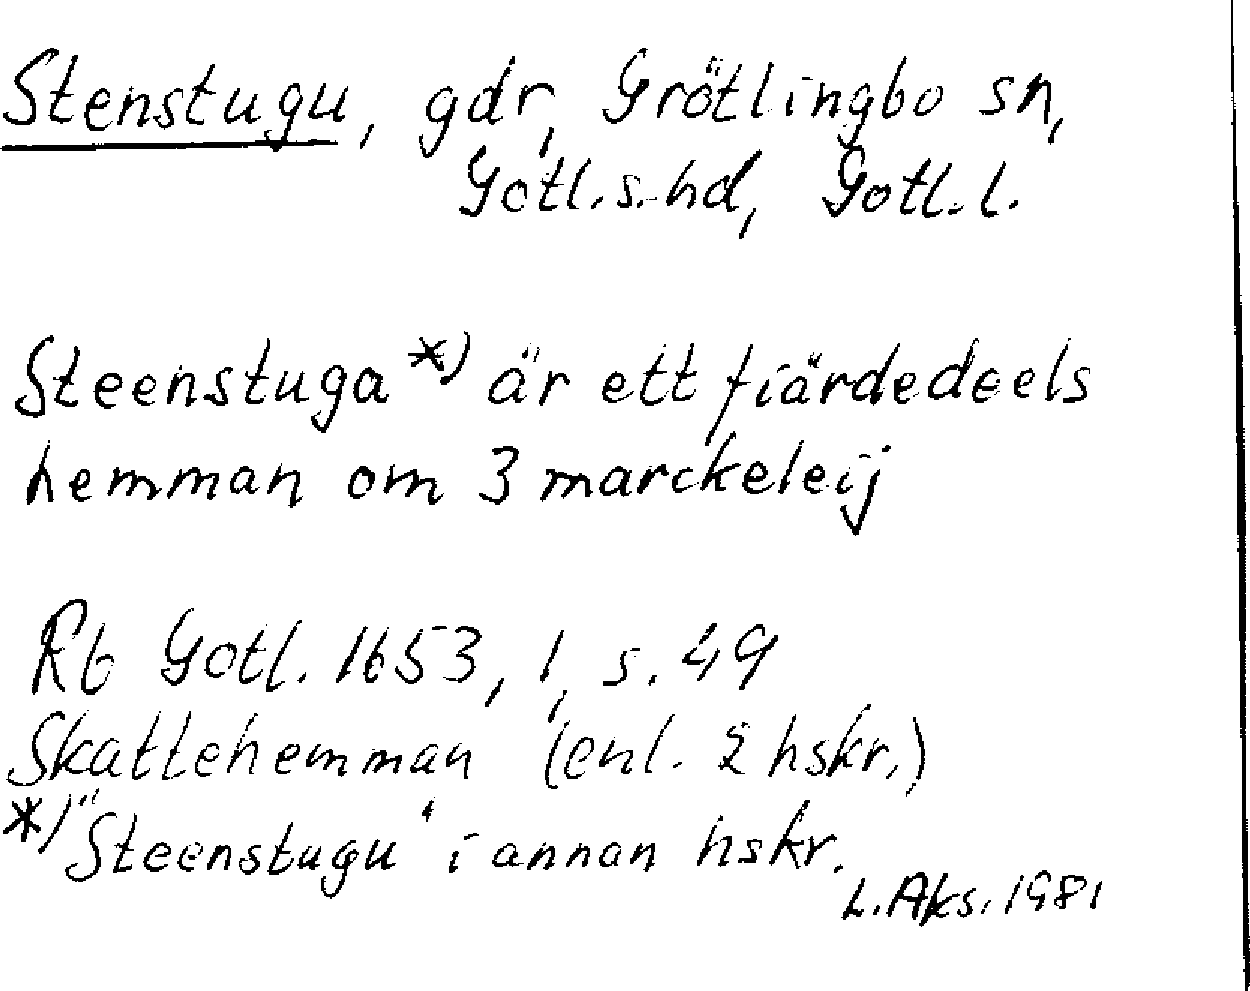 Stenstugu, gdr, Grötlingbo sn,
Gotl.s.hd, Gotl.l.
Steenstuga *) är ett fiärdedeels
hemman om 3 marckeleij
Rb Gotl. 1653, 1, s. 49
Skattehemman (enl. 2 hskr.)
*) "Steenstugu" i annan hskr.
L.Aks. 1981